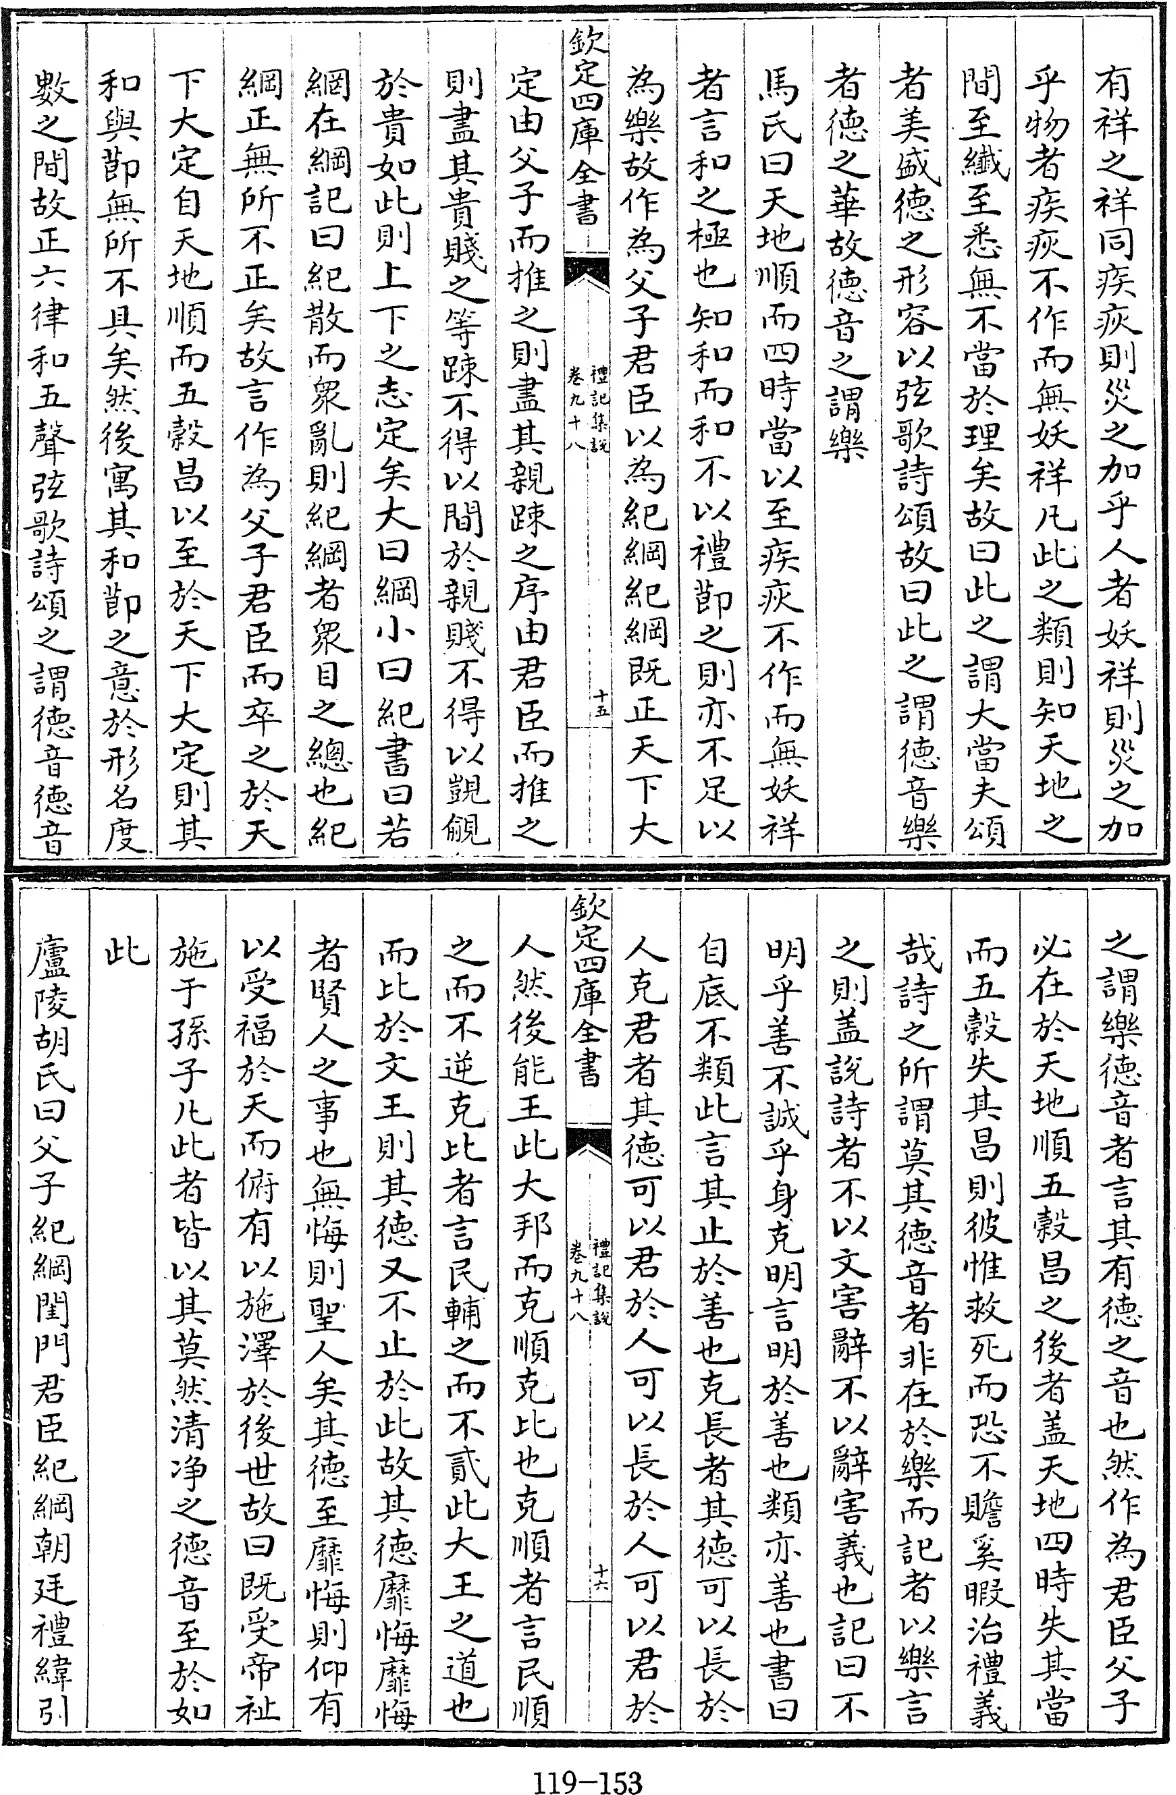 有祥之祥同疾疢則災之加乎人者妖祥則災之加
乎物者疾疢不作而無妖祥凡此之類則知天地之
間至纎至悉無不當於理矣故曰此之謂大當夫頌
者美盛徳之形容以弦歌詩頌故曰此之謂徳音樂
者徳之華故徳音之謂樂
馬氏曰天地順而四時當以至疾疢不作而無妖祥
者言和之極也知和而和不以禮節之則亦不足以
為樂故作為父子君臣以為紀綱紀綱既正天下大
欽定四庫全書
禮記集說
卷九十八
十五
定由父子而推之則盡其親踈之序由君臣而推之
則盡其貴賤之等踈不得以間於親賤不得以覬覦
於貴如此則上下之志定矣大曰綱小曰紀書曰若
網在綱記曰紀散而衆亂則紀綱者衆目之總也紀
綱正無所不正矣故言作為父子君臣而卒之於天
下大定自天地順而五穀昌以至於天下大定則其
和與節無所不具矣然後寓其和節之意於形名度
數之間故正六律和五聲弦歌詩頌之謂徳音徳音
之謂樂徳音者言其有徳之音也然作為君臣父子
必在於天地順五穀昌之後者盖天地四時失其當
而五穀失其昌則彼惟救死而恐不贍奚暇治禮義
哉詩之所謂莫其徳音者非在於樂而記者以樂言
之則盖說詩者不以文害辭不以辭害義也記曰不
明乎善不誠乎身克明言明於善也類亦善也書曰
自底不類此言其止於善也克長者其徳可以長於
人克君者其徳可以君於人可以長於人可以君於
欽定四庫全書
禮記集說
卷九十八
十六
人然後能王此大邦而克順克比也克順者言民順
之而不逆克比者言民輔之而不貳此大王之道也
而比於文王則其徳又不止於此故其徳靡悔靡悔
者賢人之事也無悔則聖人矣其徳至靡悔則仰有
以受福於天而俯有以施澤於後世故曰既受帝祉
施于孫子凡此者皆以其莫然清净之徳音至於如
此
廬陵胡氏曰父子紀綱閨門君臣紀綱朝廷禮緯引
119-153